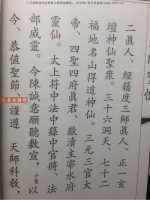 二真人、經籍度三師真人、正一玄
壇神仙聖眾。三十六洞天、七十二
福地名山得道神仙。三元三官大
帝、四聖四府真君。嶽瀆主宰水府
靈仙。太上符中法中籙中官將、法
部威靈。今陳誠意願聽敷宣。
今、恭值聖節、謹遵天師科教、